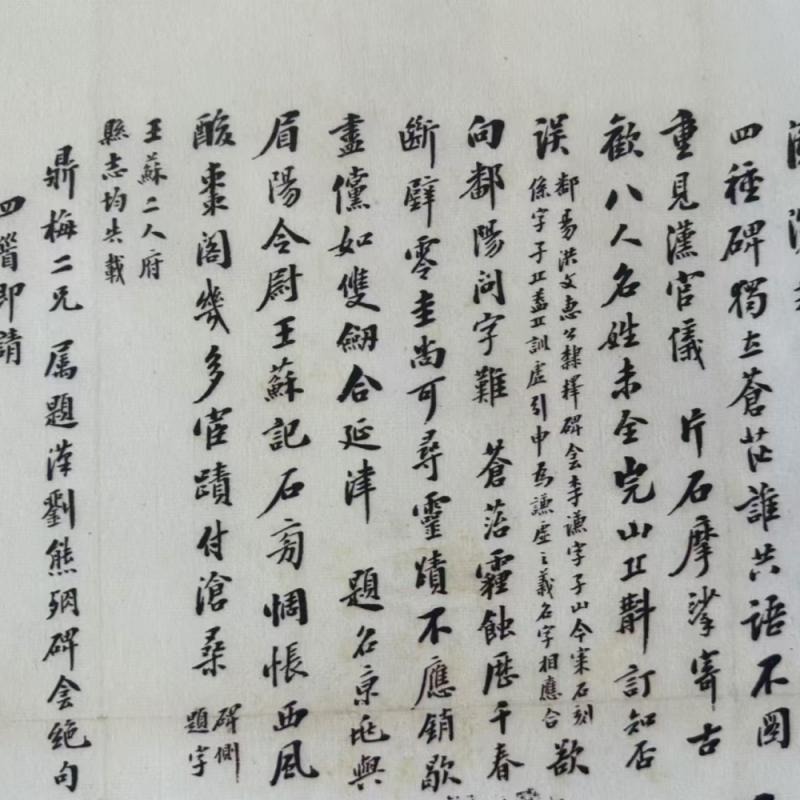 四種碑獨立蒼茫誰共語不圖
重見漢官儀 片石摩挲寄古
歡八人名姓未全完山丘斠訂知否
誤
鄱昜洪文惠公隸釋碑侌李謙字子山今案石刻
係字子丘葢丘訓虛引申為謙虛之義名字相應合
欲
向鄱陽問字難 蒼苔霾蝕歷千春
斷璧零圭尚可尋靈蹟不應銷歇
盡儻如雙劒合延津 題名京兆與
眉陽令尉王蘇記石旁惆悵西風
酸棗閣幾多宦蹟付滄桑
碑側
題字
王蘇二人府
縣志均失載
鼎梅二兄 属題漢劉熊殘碑侌絕句
四首即請